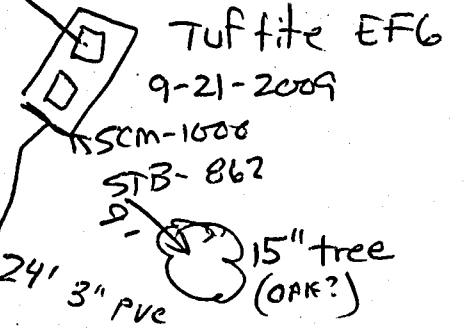 Tuf tite EF6
9-21-2009
SCM-1000
STB-862
15" tree
(OAK?)
24' 3" PVC